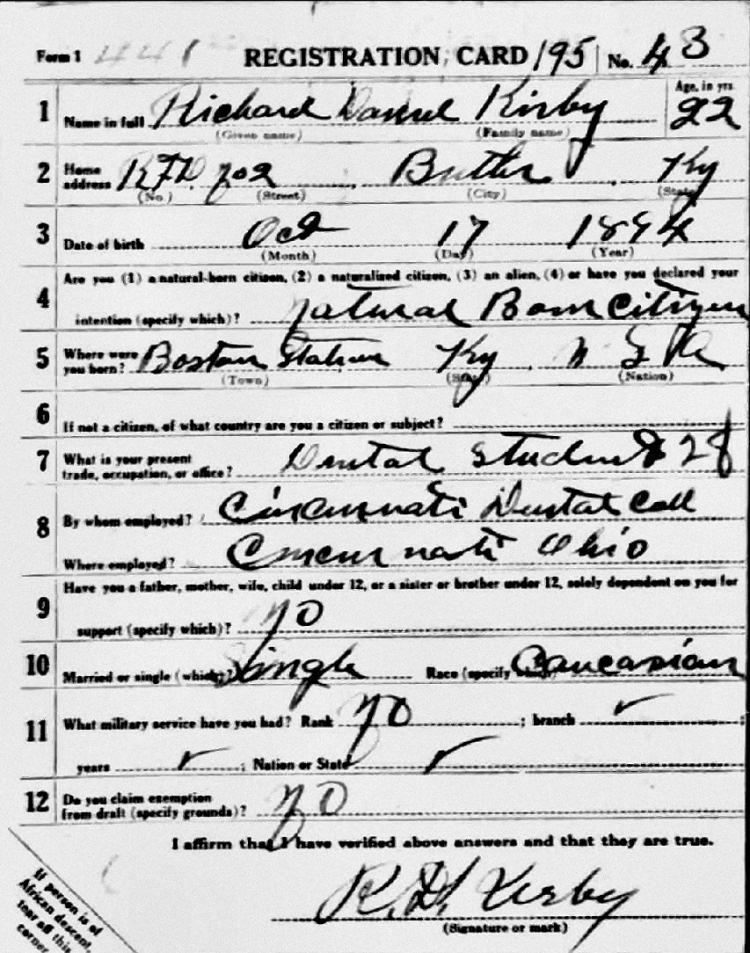 Form 1 441 REGISTRATION CARD 195 No. 43
1 Name in full Richard Daniel Kirby Age, in yrs 22
(Given name) (Family name)
2 Home address RFD No2 Butler Ky
(No.) (Street) (City) (State)
3 Date of birth Oct 17 1894
(Month) (Day) (Year)
Are you (1) a natural-born citizen, (2) a naturalized citizen, (3) an alien, (4) or have you declared your
4 intention (specify which)? Natural Born Citizen
5 Where were you born? Boston Station Ky U S A
(Town) (State) (Nation)
6 If not a citizen, of what country are you a citizen or subject?
7 What is your present trade, occupation, or office? Dental Student 28
8 By whom employed? Cincinnati Dental Coll
Where employed? Cincinnati Ohio
Have you a father, mother, wife, child under 12, or a sister or brother under 12, solely dependent on you for
9 support (specify which)? No
10 Married or single (which)? Single Race (specify which)? Caucasian
11 What military service have you had? Rank No ; branch ✓ ;
years ✓ ; Nation or State ✓
12 Do you claim exemption from draft (specify grounds)? No
I affirm that I have verified above answers and that they are true.
R. D. Kirby
(Signature or mark)
If person is of
African descent,
tear off this
corner